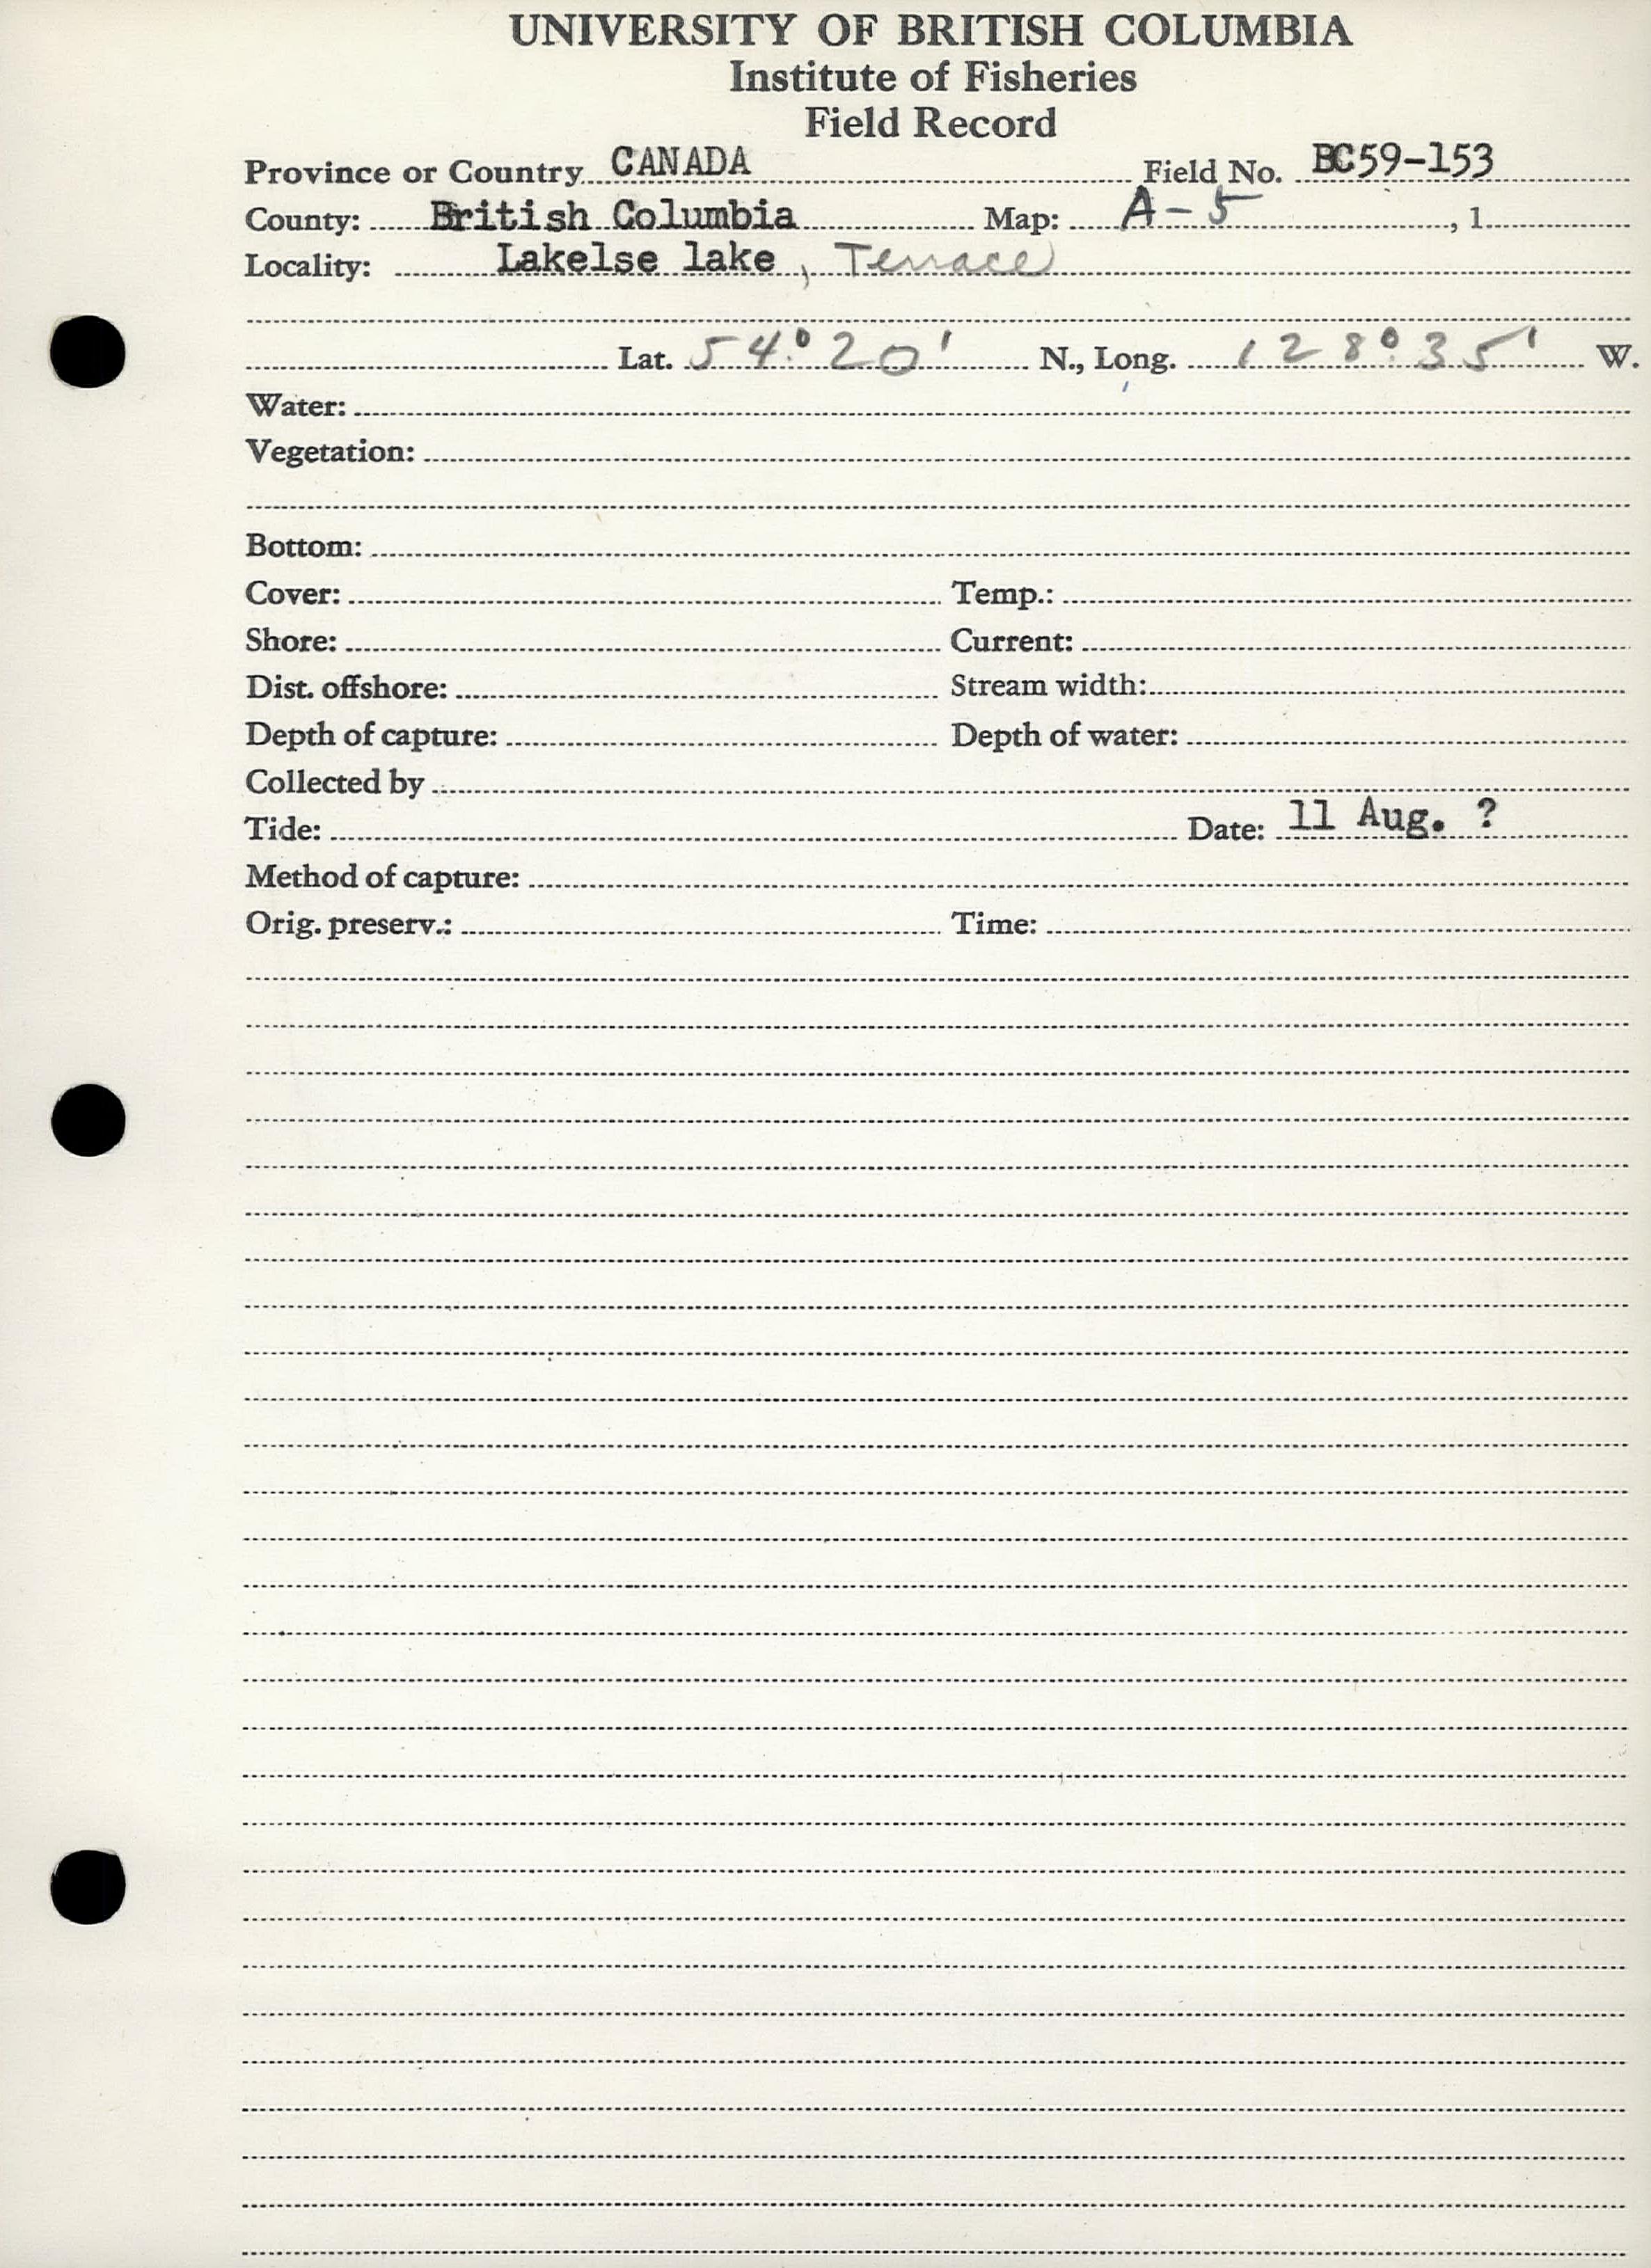 UNIVERSITY OF BRITISH COLUMBIA
Institute of Fisheries
Field Record
Province or Country CANADA Field No. BC59-153
County: British Columbia Map: A-5 , 1
Locality: Lakelse lake, Terrace
Lat. 54° 20' N., Long. 128° 35' W.
Water:
Vegetation:
Bottom:
Cover: Temp.:
Shore: Current:
Dist. offshore: Stream width:
Depth of capture: Depth of water:
Collected by
Tide: Date: 11 Aug. ?
Method of capture:
Orig. preserv.: Time: